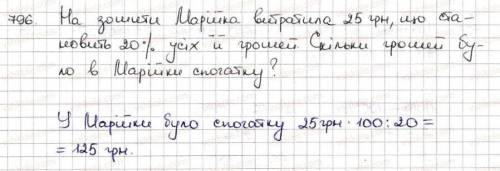 796 На зошити Марійка витратила 25 грн, що ста-
новить 20% усіх її грошей Скільки грошей бу-
ло в Марійки спочатку?
У Марійки було спочатку 25 грн · 100 : 20 =
= 125 грн.